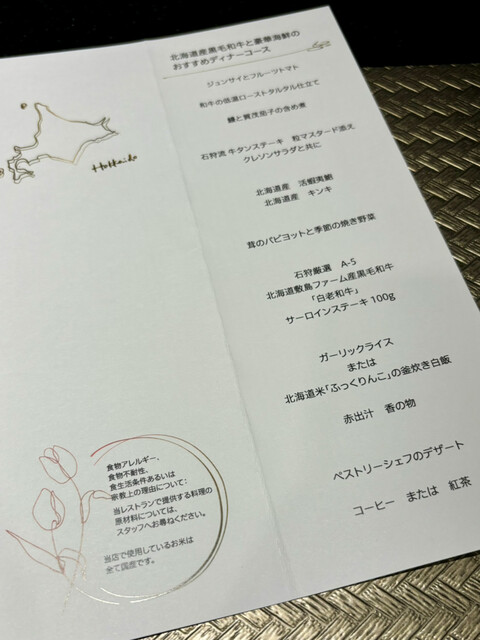 北海道産黒毛和牛と豪華海鮮の
おすすめディナーコース
ジュンサイとフルーツトマト
和牛の低温ローストタルタル仕立て
鱧と賀茂茄子の含め煮
石狩流 牛タンステーキ 粒マスタード添え
クレソンサラダと共に
北海道産 活蝦夷鮑
北海道産 キンキ
茸のパピヨットと季節の焼き野菜
石狩厳選 A-5
北海道敷島ファーム産黒毛和牛
「白老和牛」
サーロインステーキ 100g
ガーリックライス
または
北海道米「ふっくりんこ」の釜炊き白飯
赤出汁 香の物
ペストリーシェフのデザート
コーヒー または 紅茶
Hokkaido
食物アレルギー、
食物不耐性、
食生活条件あるいは
宗教上の理由について:
当レストランで提供する料理の
原材料については、
スタッフへお尋ねください。
当店で使用しているお米は
全て国産です。